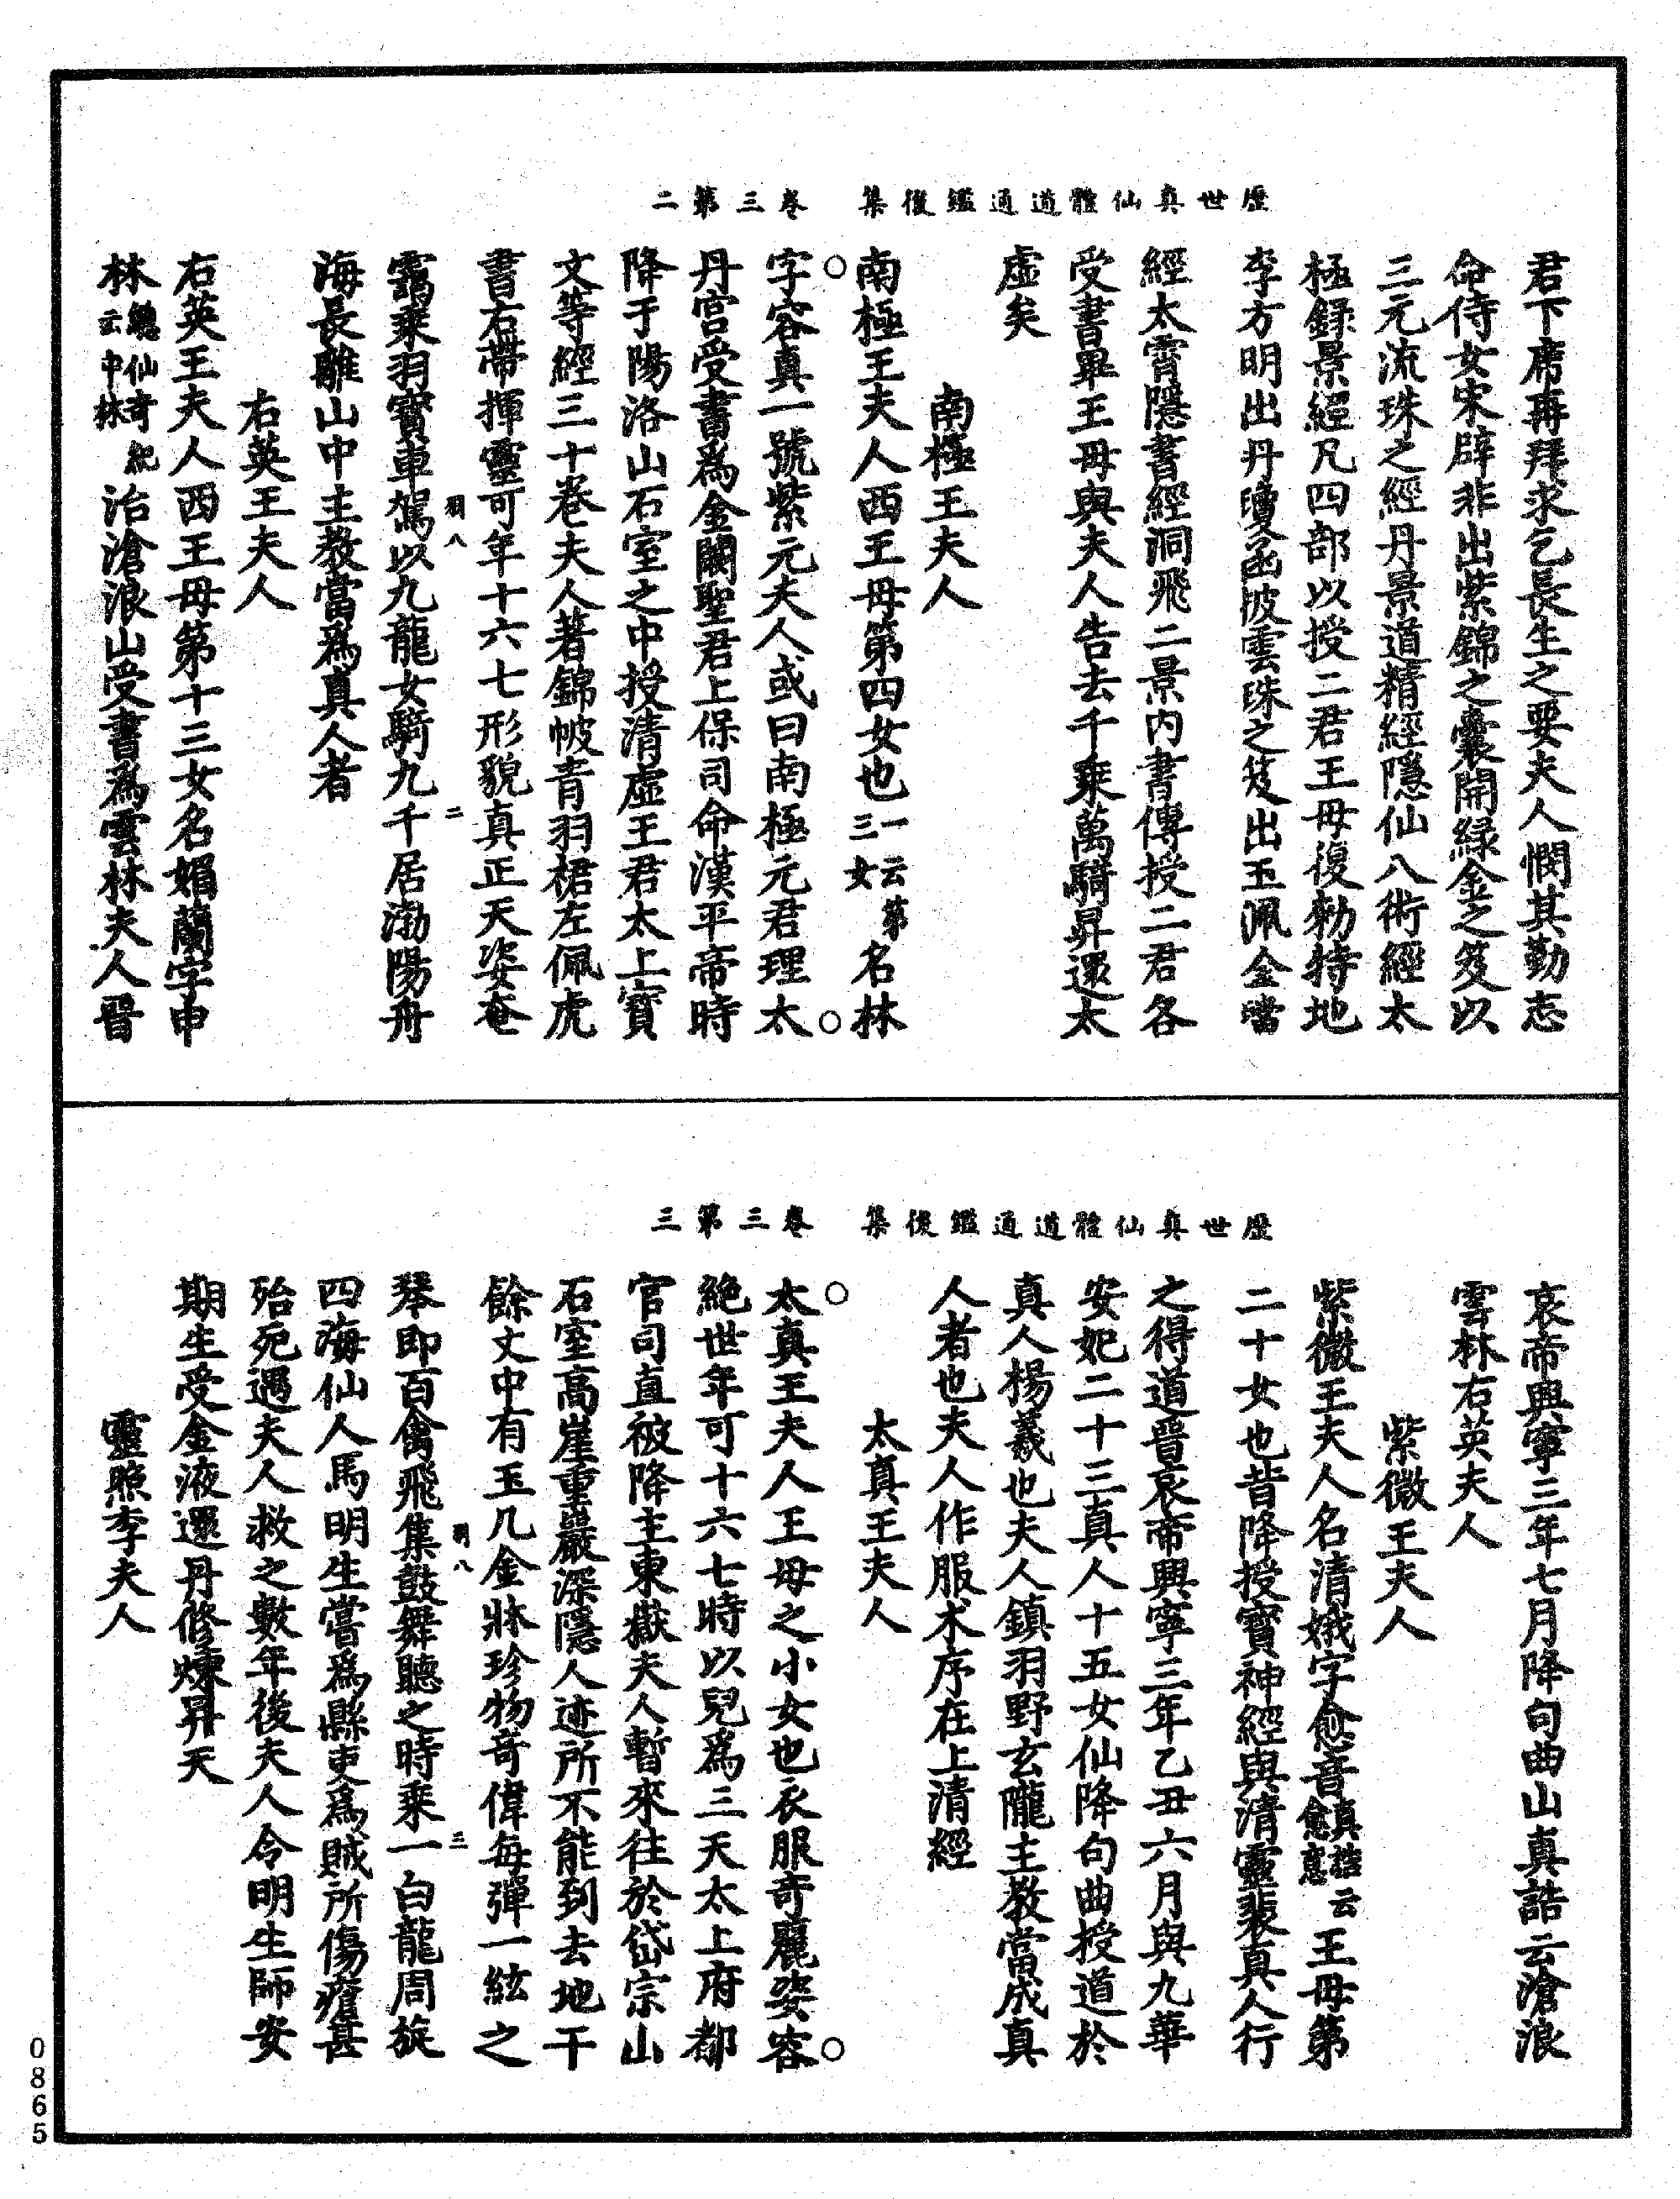 歷世真仙體道通鑑後集　卷三第二
君下席再拜求乞長生之要夫人憫其勤志
命侍女宋辟非出紫錦之囊開綠金之笈以
三元流珠之經丹景道精經隱仙八術經太
極錄景經凡四部以授二君王母復勑特地
李方明出丹瓊函披雲珠之笈出玉佩金璫
經太霄隱書經洞飛二景內書傳授二君各
受書畢王母與夫人告去千乘萬騎昇還太
虛矣
南極王夫人
南極王夫人西王母第四女也一云第三女名林
字容真一號紫元夫人或曰南極元君理太
丹宮受書為金闕聖君上保司命漢平帝時
降于陽洛山石室之中授清虛王君太上寶
文等經三十卷夫人著錦帔青羽裙左佩虎
書右帶揮靈可年十六七形貌真正天姿奄
靄乘羽寶車駕以九龍女騎九千居渤陽丹
羽八
二
海長離山中主教當為真人者
右英王夫人
右英王夫人西王母第十三女名媚蘭字申
林總仙奇紀云申林治滄浪山受書為雲林夫人晉
歷世真仙體道通鑑後集　卷三第三
哀帝興寧三年七月降句曲山真誥云滄浪
雲林右英夫人
紫微王夫人
紫微王夫人名清娥字愈音真誥云愈意王母第
二十女也昔降授寶神經與清靈裴真人行
之得道晉哀帝興寧三年乙丑六月與九華
安妃二十三真人十五女仙降句曲授道於
真人楊羲也夫人鎮羽野玄隴主教當成真
人者也夫人作服朮序在上清經
太真王夫人
太真王夫人王母之小女也衣服奇麗姿容
絕世年可十六七時以兒為三天太上府都
官司直被降主東嶽夫人暫來往於岱宗山
石室高崖重巖深隱人迹所不能到去地千
餘丈中有玉几金牀珍物奇偉每彈一絃之
琴即百禽飛集鼓舞聽之時乘一白龍周旋
羽八
三
四海仙人馬明生嘗為縣吏為賊所傷瘡甚
殆死遇夫人救之數年後夫人令明生師安
期生受金液還丹修煉昇天
靈照李夫人
0865